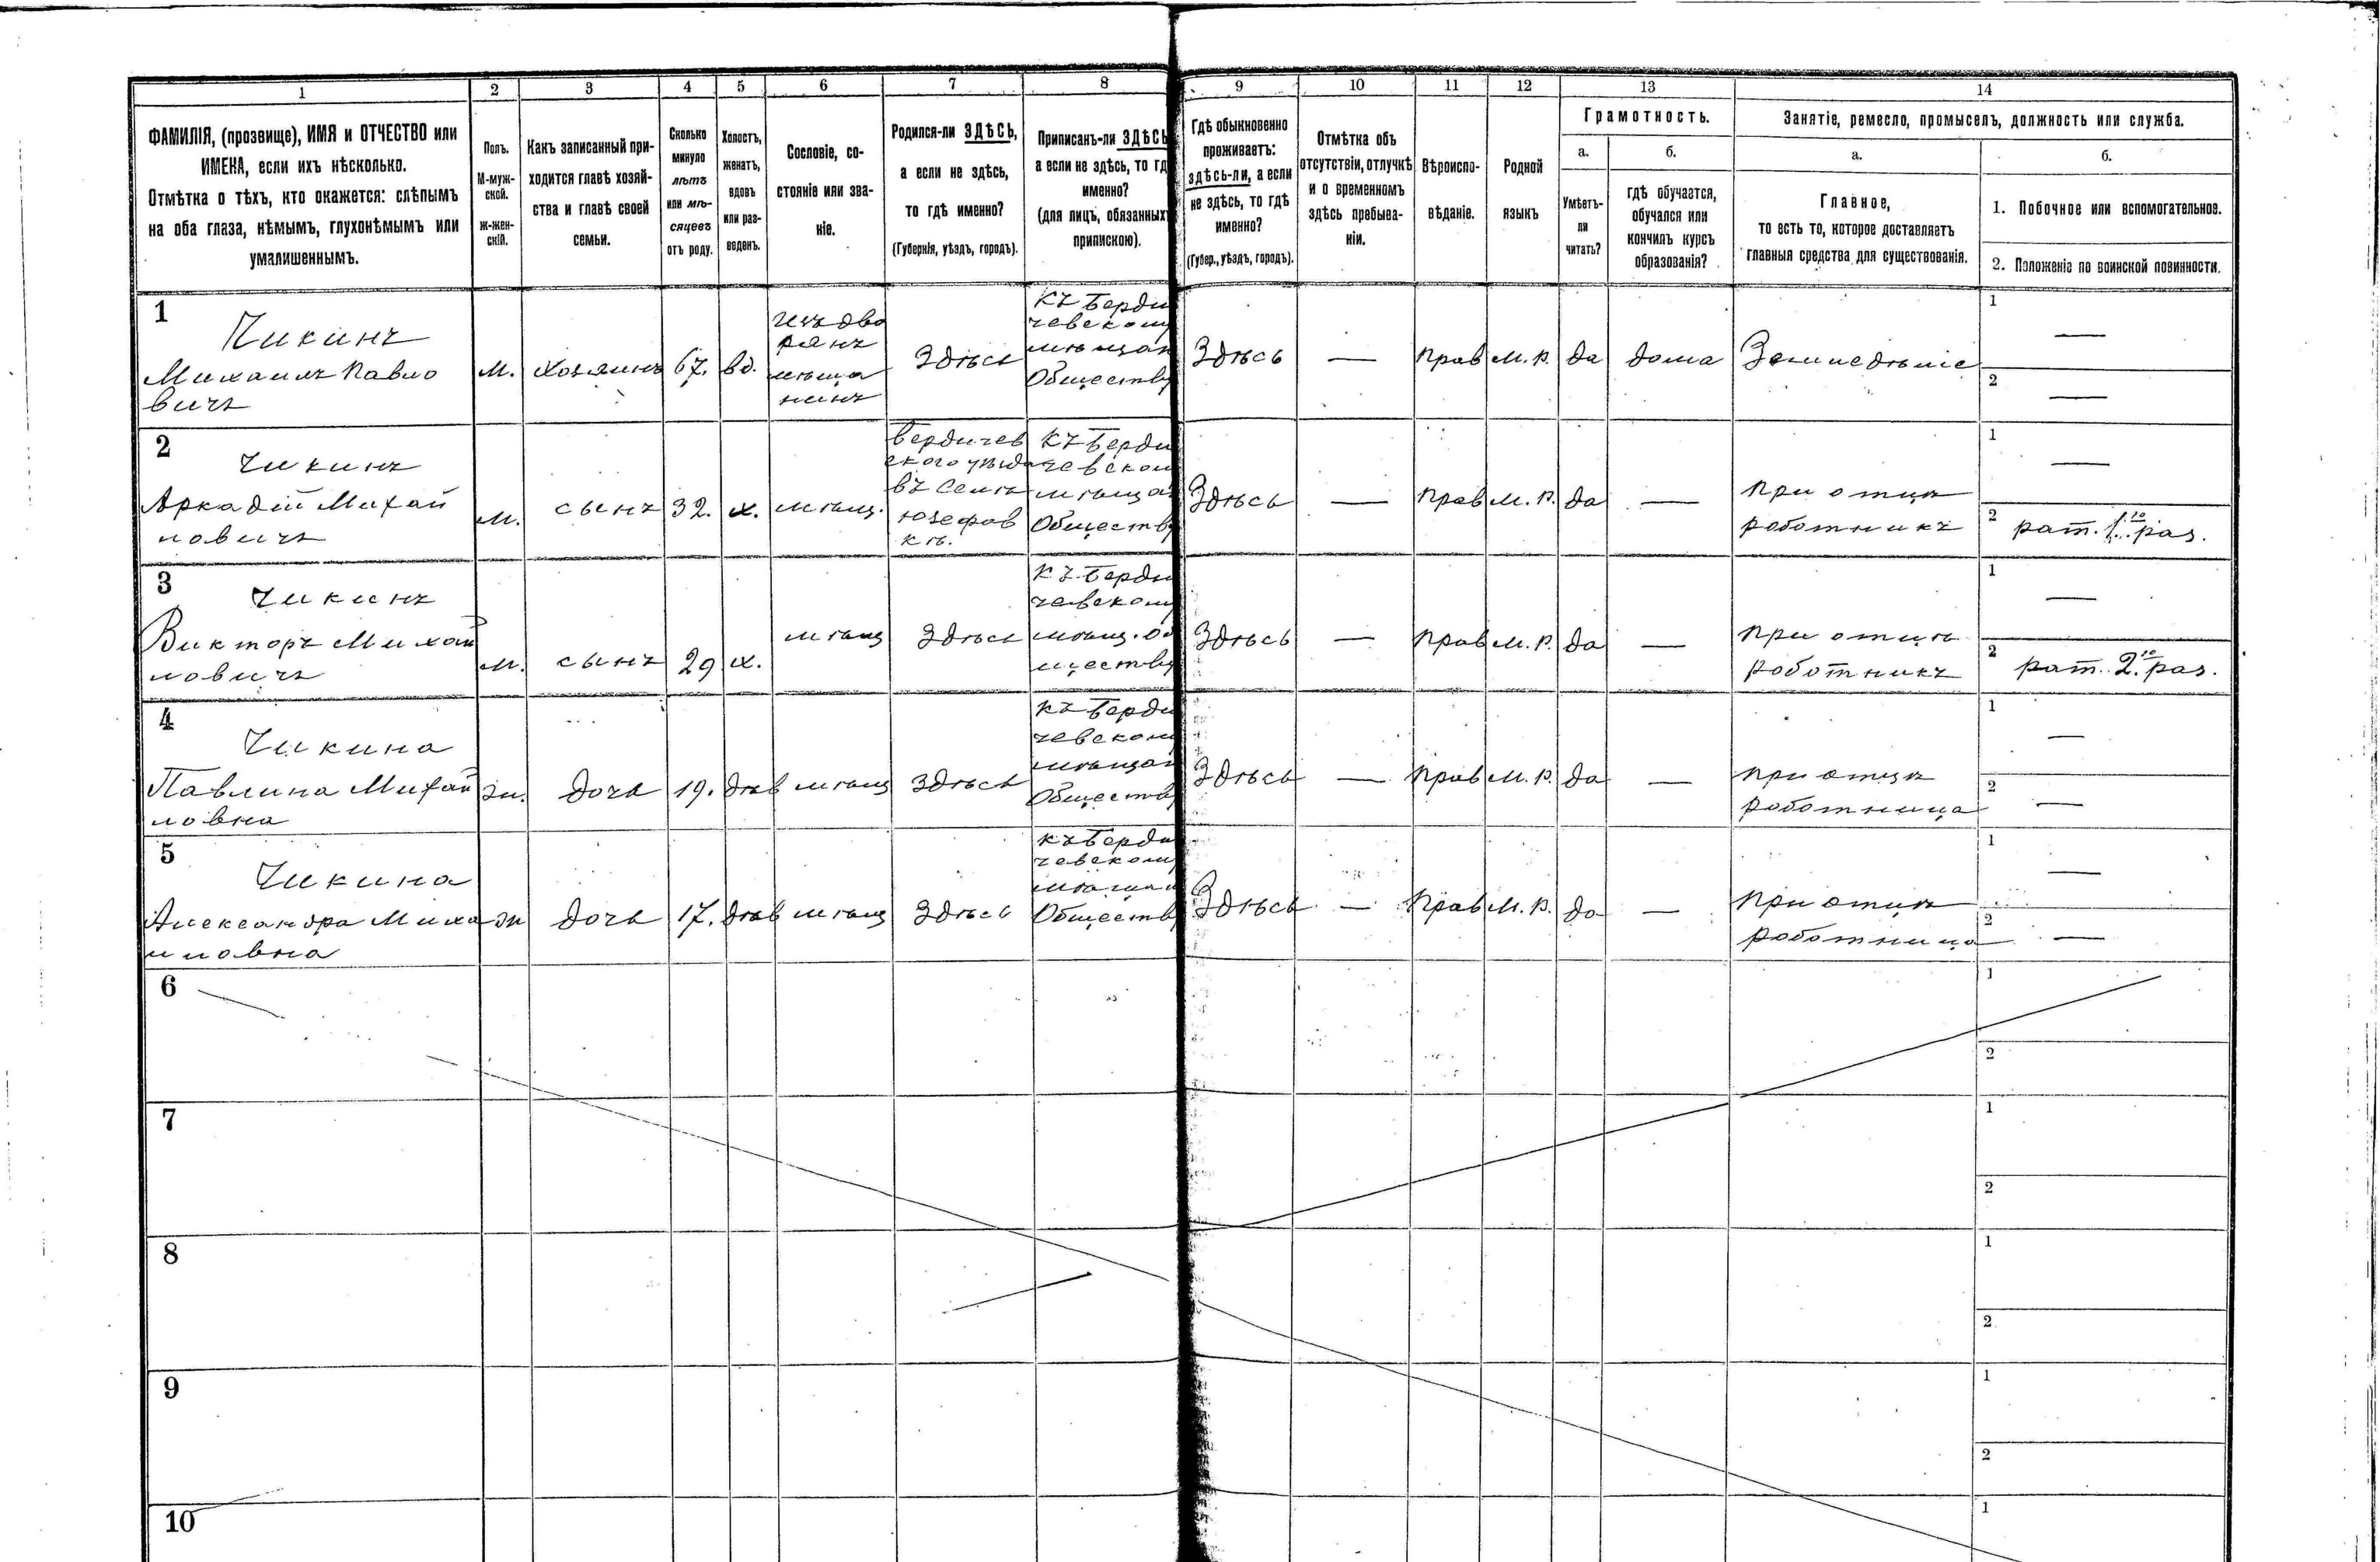 1 2 3 4 5 6 7 8 9 10 11 12 13 14
ФАМИЛІЯ, (прозвище), ИМЯ и ОТЧЕСТВО или
ИМЕНА, если ихъ нѣсколько.
Отмѣтка о тѣхъ, кто окажется: слѣпымъ
на оба глаза, нѣмымъ, глухонѣмымъ или
умалишеннымъ.
Полъ.
М-муж-
ской.
ж-жен-
скій.
Какъ записанный при-
ходится главѣ хозяй-
ства и главѣ своей
семьи.
Сколько
минуло
лѣтъ
или мѣ-
сяцевъ
отъ роду.
Холостъ,
женатъ,
вдовъ
или раз-
веденъ.
Сословіе, со-
стояніе или зва-
ніе.
Родился-ли ЗДѢСЬ,
а если не здѣсь,
то гдѣ именно?
(Губернія, уѣздъ, городъ).
Приписанъ-ли ЗДѢСЬ
а если не здѣсь, то гд
именно?
(для лицъ, обязанныхъ
припискою).
Гдѣ обыкновенно
проживаетъ:
здѣсь-ли, а если
не здѣсь, то гдѣ
именно?
(Губер., уѣздъ, городъ).
Отмѣтка объ
отсутствіи, отлучкѣ
и о временномъ
здѣсь пребыва-
ніи.
Вѣроиспо-
вѣданіе.
Родной
языкъ
Грамотность.
а.
Умѣетъ-
ли
читать?
б.
гдѣ обучается,
обучался или
кончилъ курсъ
образованія?
Занятіе, ремесло, промыселъ, должность или служба.
а.
Главное,
то есть то, которое доставляетъ
главныя средства для существованія.
б.
1. Побочное или вспомогательное.
2. Положеніе по воинской повинности.
1
Чикинъ
Михаилъ Павло
вичъ
м.
хозяинъ
67.
вд.
изъ дво
рянъ
мѣща
нинъ
Здѣсь
Къ Берди
чевскому
мѣщан
Обществу
Здѣсь
—
прав
М. Р.
да
дома
Земледѣліе
1
—
2
—
2
Чикинъ
Аркадій Михай
ловичъ
м.
сынъ
32.
х.
мѣщ.
Бердичев
ского уѣзда
въ Селѣ
Юзефов
кѣ.
Къ Берди
чевском
мѣщан
Обществу
Здѣсь
—
прав
М. Р.
да
—
при отцѣ
работникъ
1
—
2
рат. 1.го раз.
3
Чикинъ
Викторъ Михай
ловичъ
м.
сынъ
29
х.
мѣщ
Здѣсь
Къ Берди
чевскому
мѣщ. Об
ществу
Здѣсь
—
прав
М. Р.
да
—
при отцѣ
работникъ
1
—
2
рат. 2.го раз.
4
Чикина
Павлина Михай
ловна
ж.
дочь
19.
дѣв
мѣщ
Здѣсь
Къ Берди
чевском
мѣщан
Обществ
Здѣсь
—
прав
М. Р.
да
—
при отцѣ
работница
1
—
2
—
5
Чикина
Александра Миха
иловна
ж
дочь
17.
дѣв
мѣщ
Здѣсь
Къ Берди
чевском
мѣщан
Обществ
Здѣсь
—
Прав
М. Р.
да
—
при отцѣ
работница
1
—
2
—
6
1
2
7
1
2
8
1
2
9
1
2
10
1